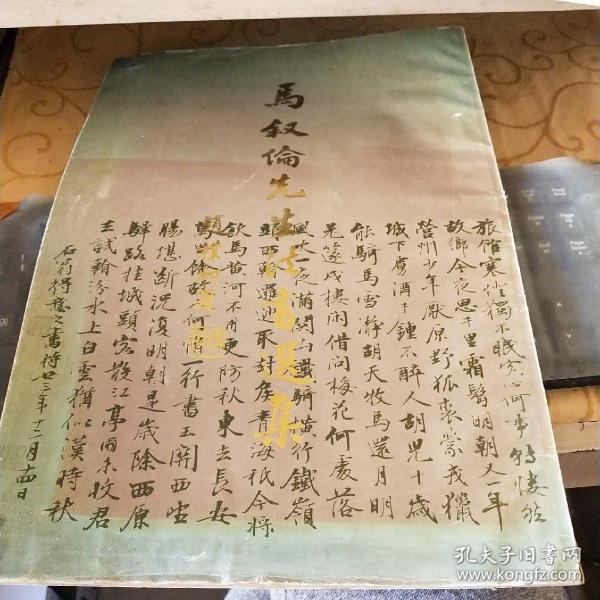 馬叙倫先生法書選集
趙樸初題
旅館寒燈獨不眠客心何事轉悽然
故鄉今夜思千里霜鬢明朝又一年
營州少年厭原野狐裘蒙茸獵
城下虜酒千鍾不醉人胡兒十歲
能騎馬雪淨胡天牧馬還月明
羌篴戍樓閒借問梅花何處落
風吹一夜滿關山鐵騎橫行鐵嶺
頭西看邏逤取封侯青海祇今將
飲馬黃河不用更防秋東去長安
萬里餘故人何惜一行書玉關西望
腸堪斷況復明朝是歲除西原
驛路挂城頭客散江亭雨未收君
去試看汾水上白雲猶似漢時秋
石翁得意之書時廿三年十一月十四日
孔夫子旧书网
www.kongfz.com